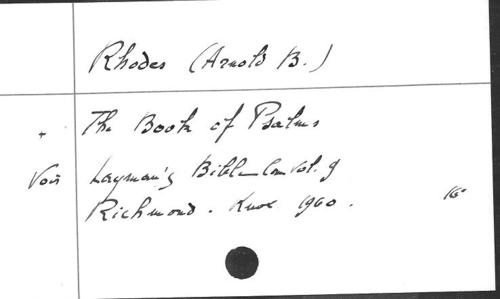 Rhodes (Arnold B.)
+ The Book of Psalms
Voir Layman's Bible Com Vol. 9
Richmond. Knox 1960. 16°